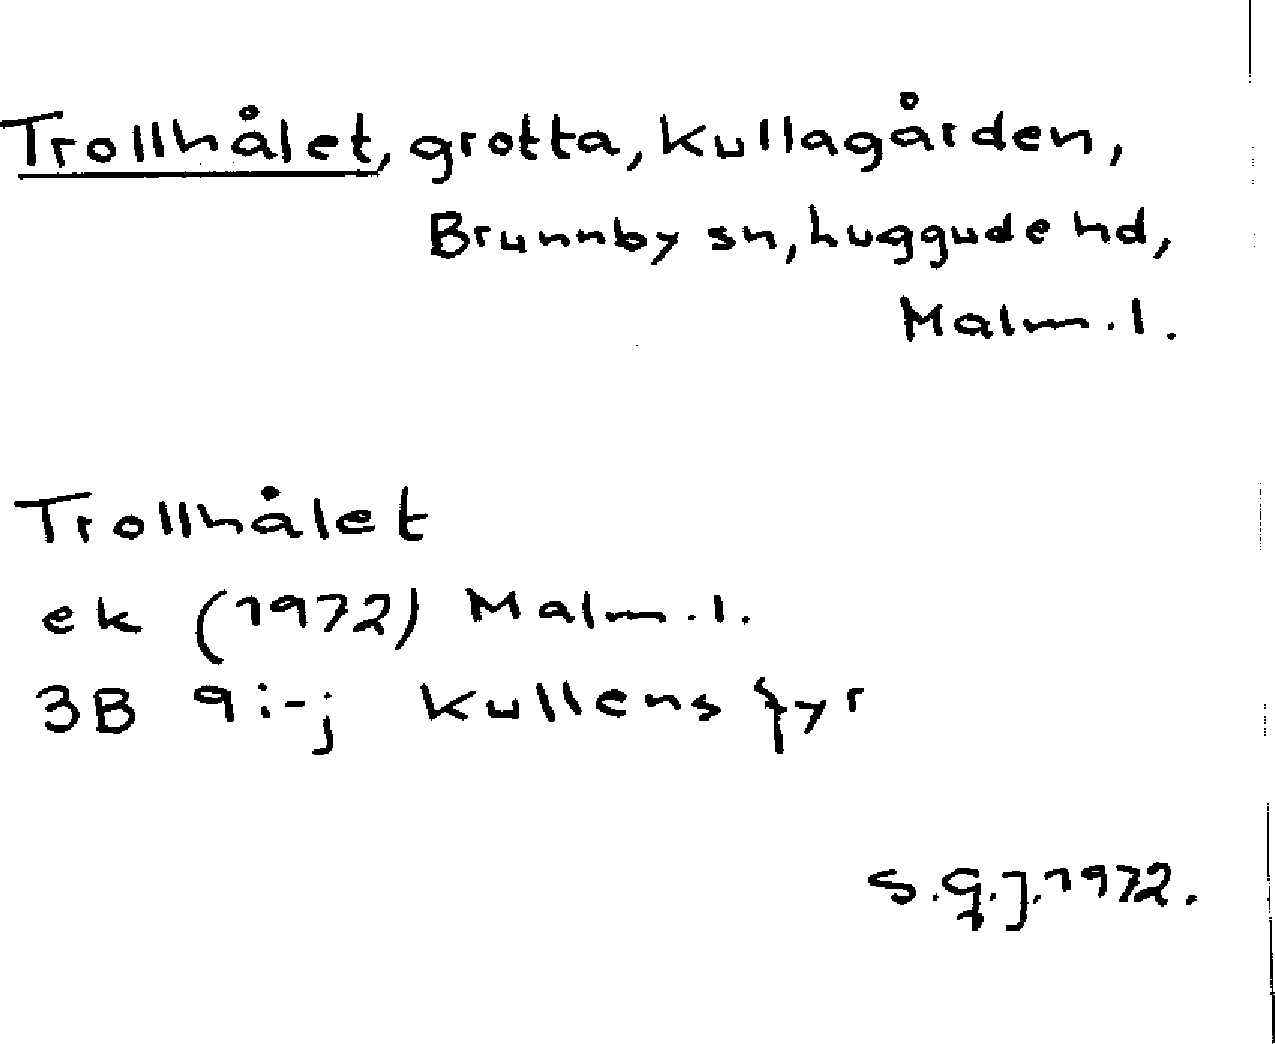 Trollhålet, grotta, Kullagården,
Brunnby sn, Luggude hd,
Malm.l.
Trollhålet
ek (1972) Malm.l.
3B 9i-j Kullens fyr
S.G.J. 1972.